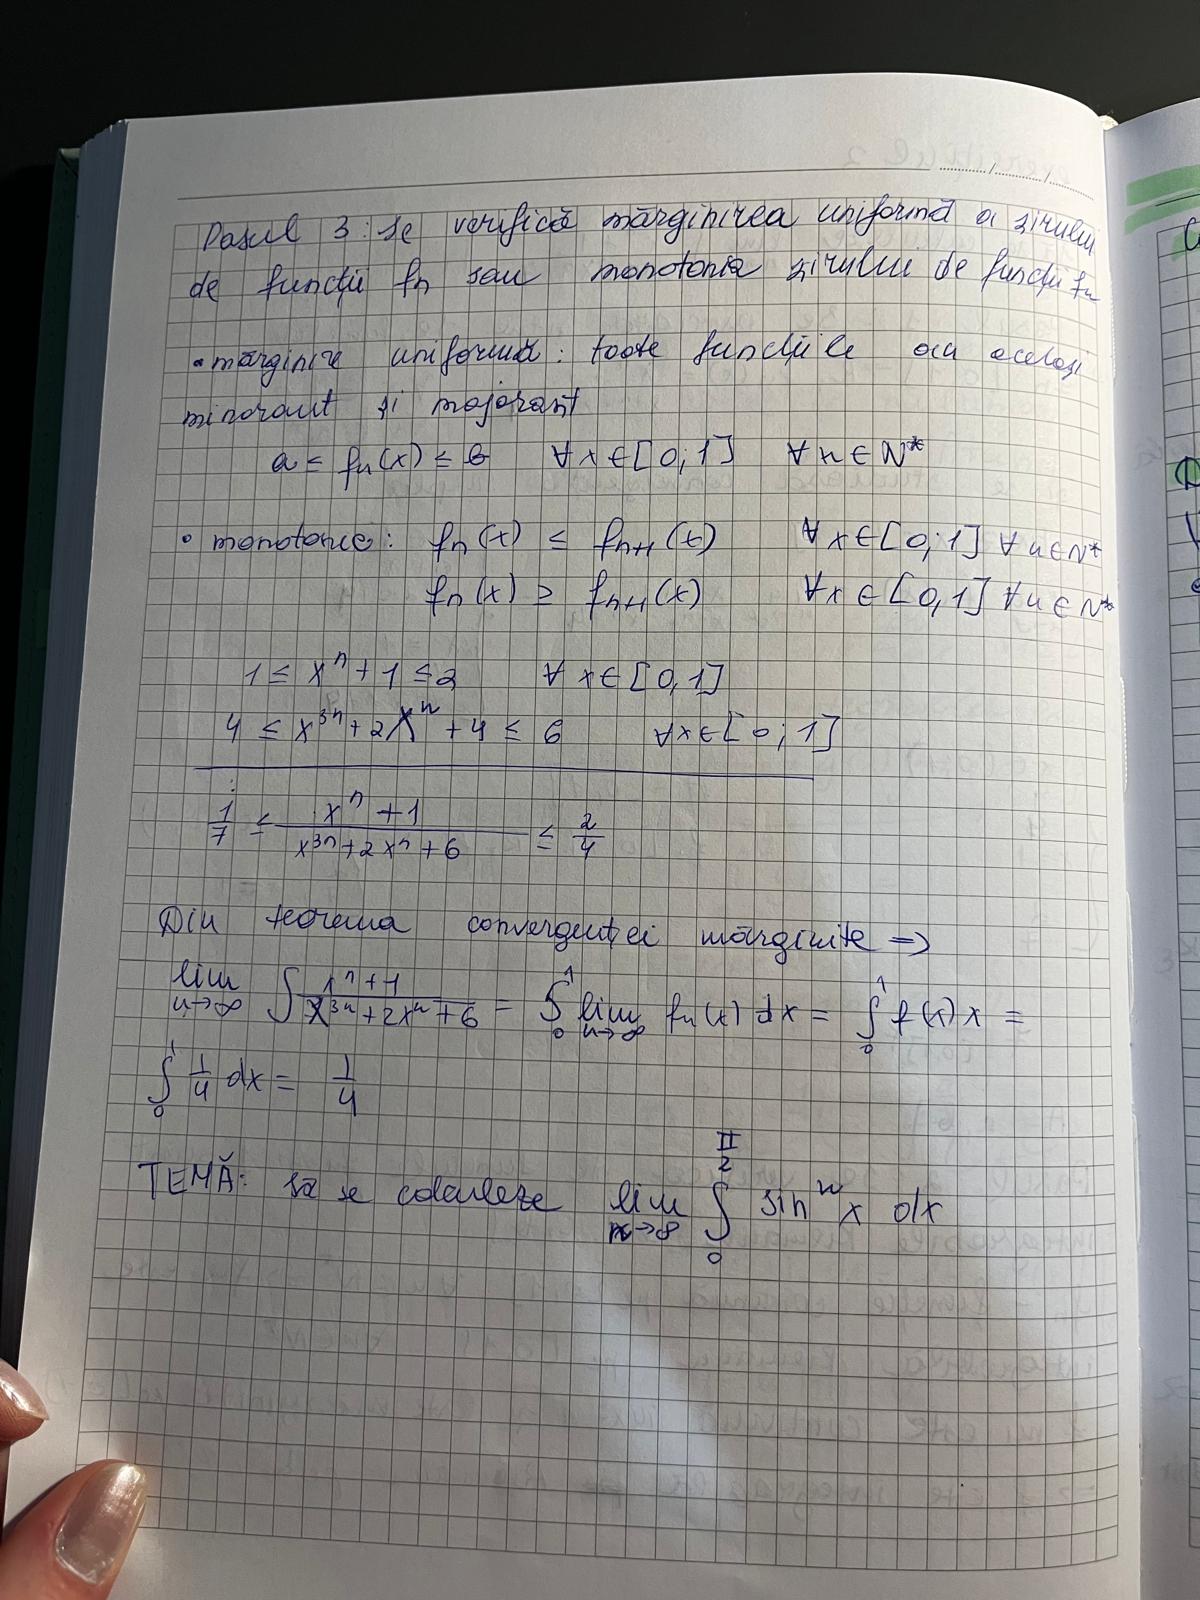 Pasul 3: se verifică mărginirea uniformă a șirului
de funcții fn sau monotonia șirului de funcții fn
• mărginire uniformă: toate funcțiile au același
minorant și majorant
a ≤ fn(x) ≤ b ∀x∈[0;1] ∀n∈N*
• monotonie: fn(x) ≤ fn+1(x) ∀x∈[0;1] ∀n∈N*
fn(x) ≥ fn+1(x) ∀x∈[0,1] ∀n∈N*
1 ≤ xⁿ+1 ≤ 2 ∀x∈[0,1]
4 ≤ x³ⁿ+2xⁿ+4 ≤ 6 ∀x∈[0;1]
1/7 ≤ (xⁿ+1)/(x³ⁿ+2xⁿ+6) ≤ 2/4
Din teorema convergenței mărginite =>
lim n→∞ ∫ (xⁿ+1)/(x³ⁿ+2xⁿ+6) = ∫₀¹ lim n→∞ fn(x) dx = ∫₀¹ f(x) x =
∫₀¹ 1/4 dx = 1/4
TEMĂ: să se calculeze lim n→∞ ∫₀^(π/2) sinⁿ x dx